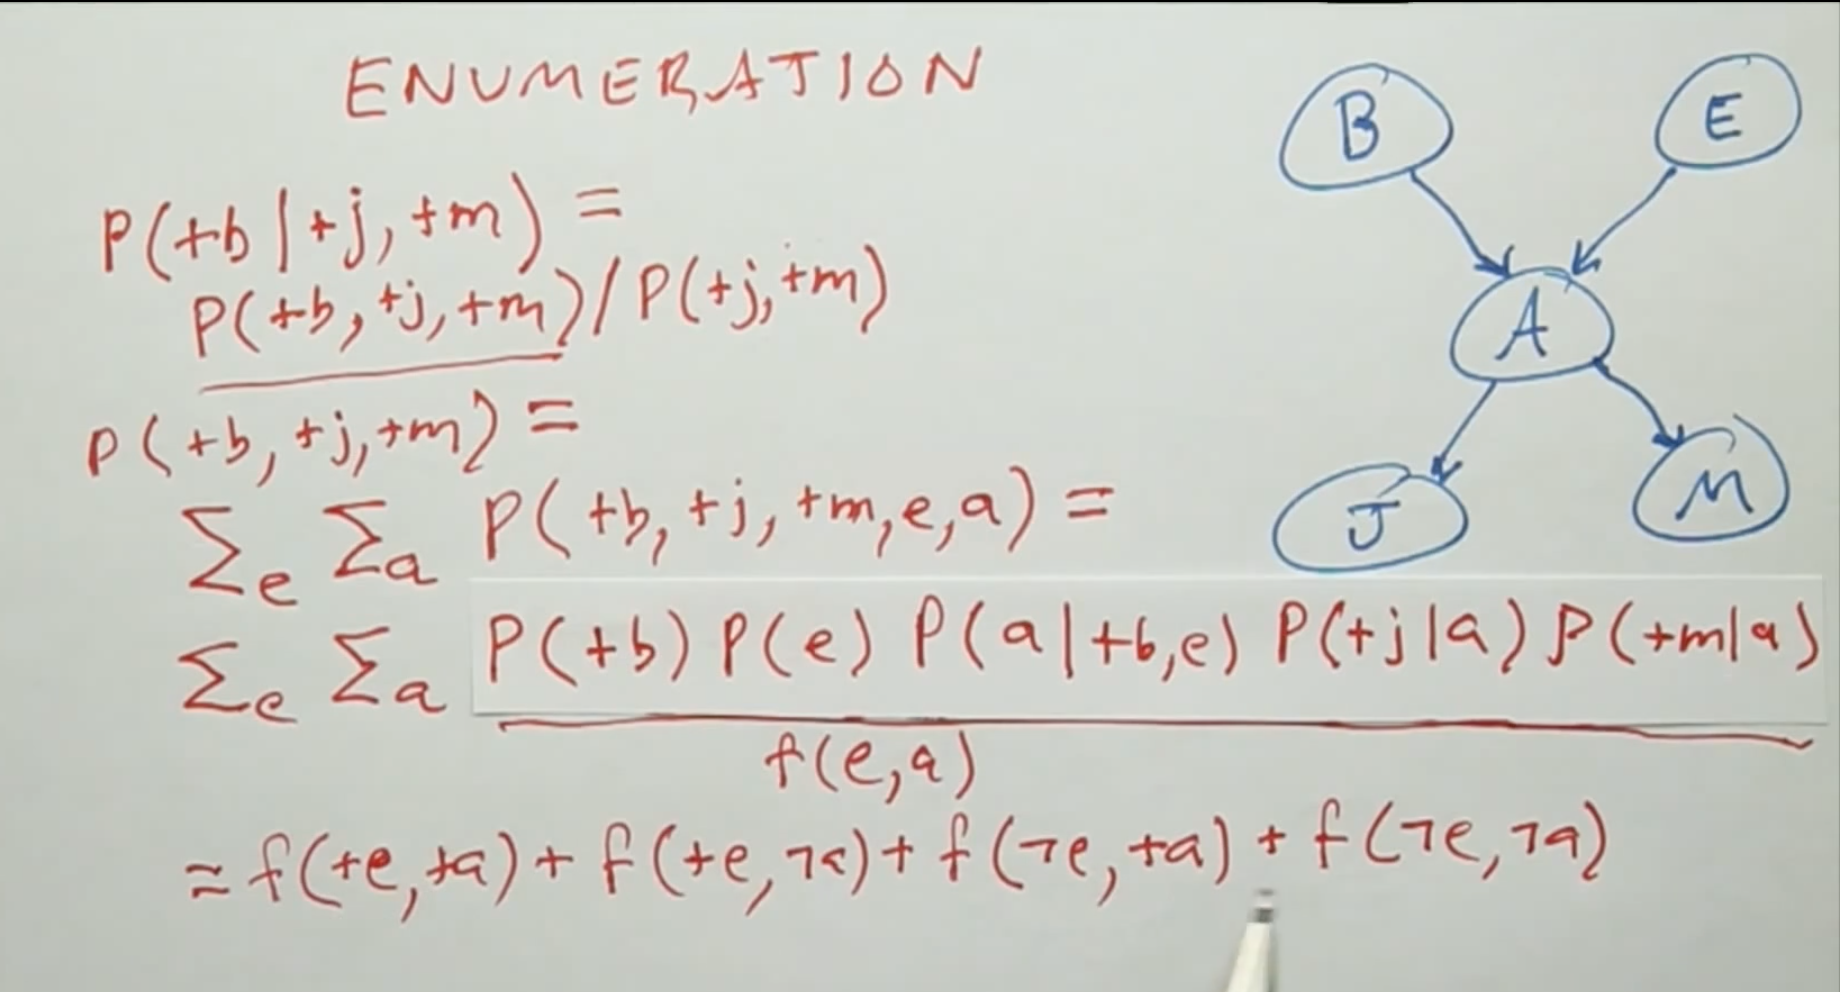 ENUMERATION
P(+b|+j,+m) =
P(+b,+j,+m)/P(+j,+m)
P(+b,+j,+m) =
Σe Σa P(+b,+j,+m,e,a) =
Σe Σa P(+b) P(e) P(a|+b,e) P(+j|a) P(+m|a)
f(e,a)
= f(+e,+a) + f(+e,¬a) + f(¬e,+a) + f(¬e,¬a)
B
E
A
J
M